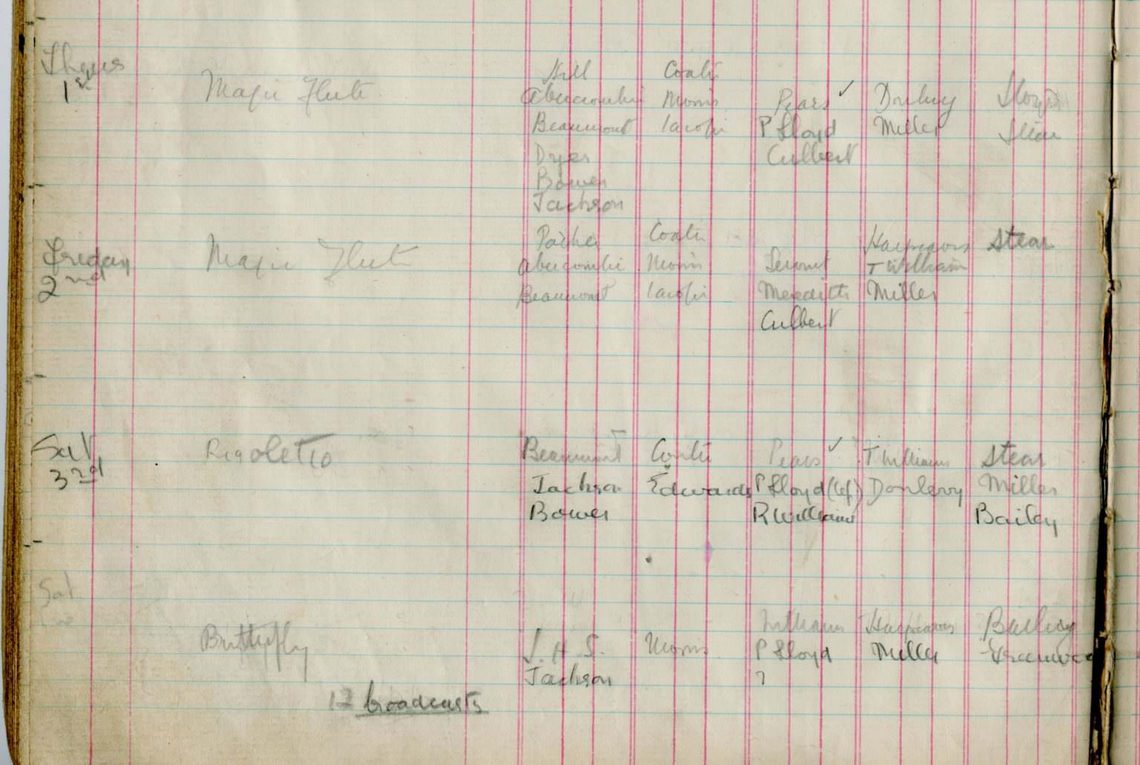 Thurs Hill Coates
1st Magic Flute Abercrombie Morris Pears ✓ Donlevy
Beaumont Iacopi P Lloyd Miller Stear
Dyer Culbert
Bower
Jackson
Friday Magic Flute Parker Coates Hargreaves Stear
2nd Abercrombie Morris Servent T William
Beaumont Iacopi Meredith Miller
Culbert
Sat Rigoletto Beaumont Pears ✓ T Williams Stear
3rd Jackson Edwards P Lloyd (Cef) Donlevy Miller
Bower R Williams Bailey
Sat Williams Hargreaves Bailey
Butterfly J.H.S. Morris P Lloyd Miller Greenwood
Jackson ?
12 broadcasts